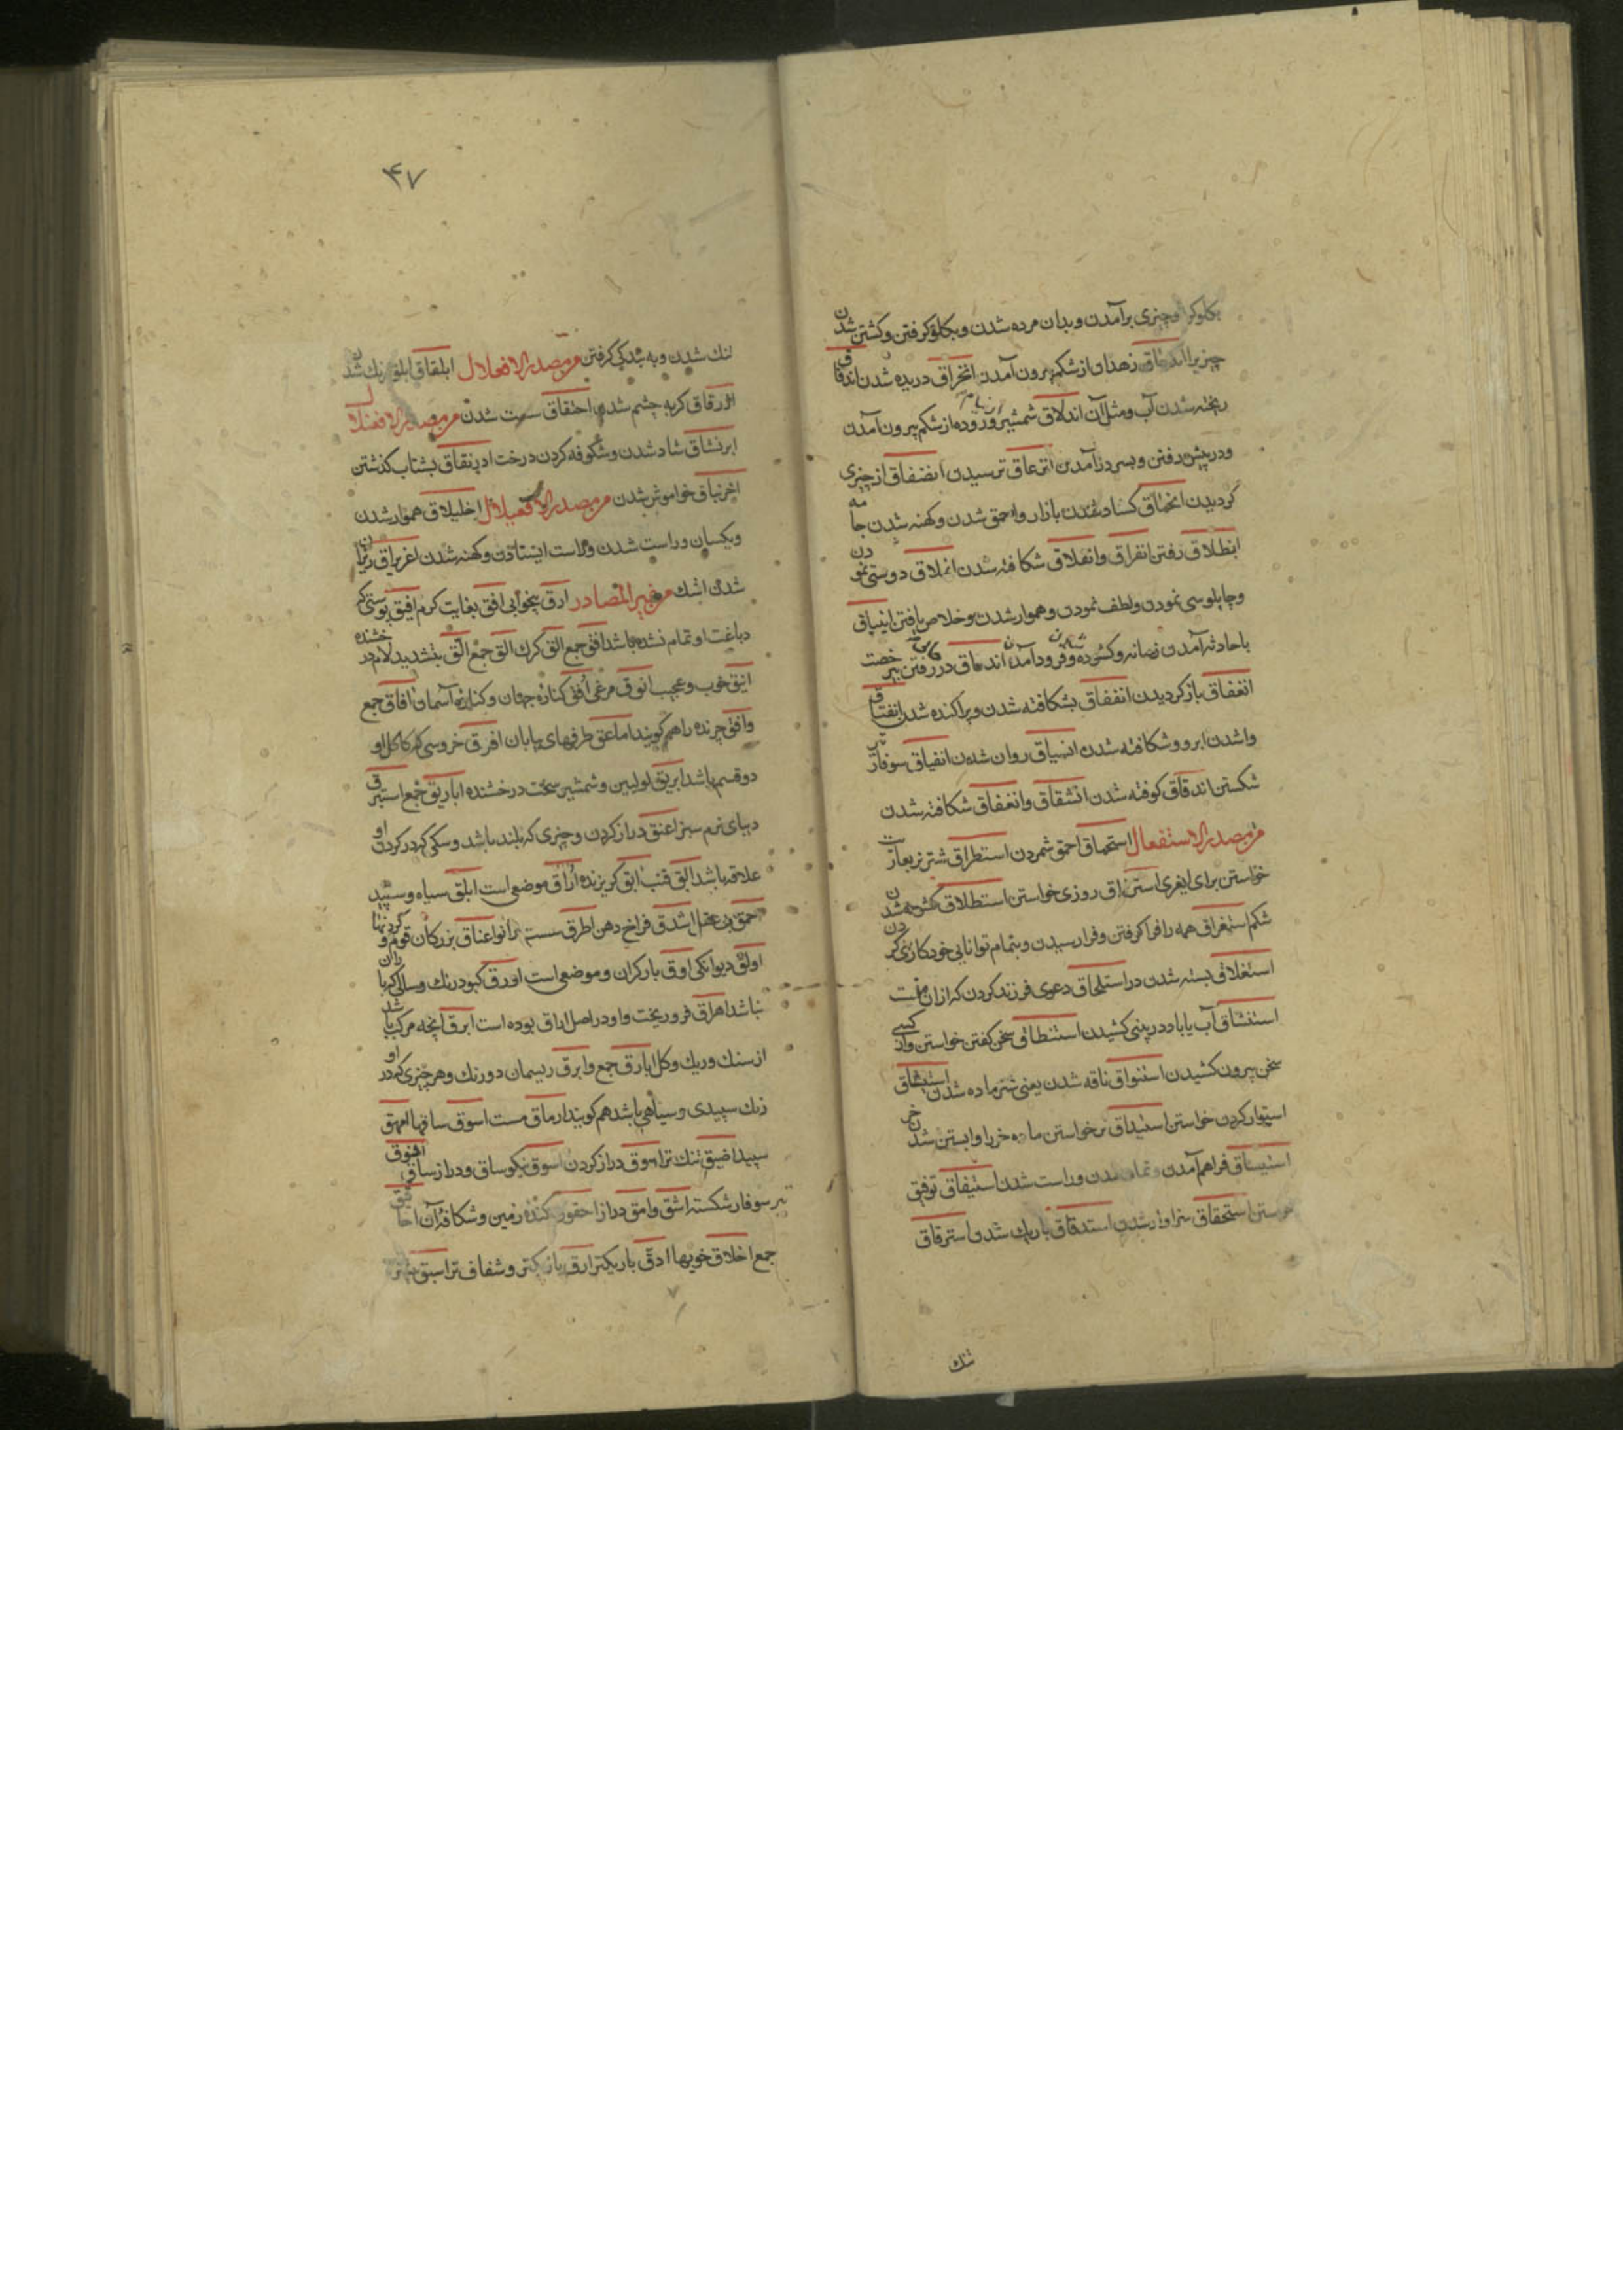 چیزی برآمدن و بدان مرده شدن و بکلو کرفتن و کشتن شدن
چیزیرا زهدان از شکم بیرون آمدن انخراق دریده شدن اندفاق
ریخته شدن آب و مثل آن اندلاق شمشیر از نیام و روده از شکم بیرون آمدن
و در پیش رفتن و بسر درآمدن انزعاق ترسیدن انضفاق از چیزی
کردیدن انحماق کساد شدن بازار و احمق شدن و کهنه شدن جامه
انطلاق رفتن انفراق و انفلاق شکافته شدن انملاق دوستی نمودن
و چاپلوسی نمودن و لطف نمودن و هموار شدن و خلاص یافتن انبیاق
با حادثه آمدن زمانه و کشوده و فرود آمدن اندماق در رفتن بی رخصت
انغفاق باز کردیدن انفقاق بشکافته شدن و پراکنده شدن انفتاق
وا شدن ابر و شکافته شدن انسیاق روان شدن انفیاق سوفار تیر
شکستن اندقاق کوفته شدن انشقاق و انعقاق شکافته شدن
من مصدر الاستفعال استحماق احمق شمردن استطراق شتر نر بعاریت
خواستن برای ایغری استرزاق روزی خواستن استطلاق کشوده شدن
شکم استغراق همه را فرا کرفتن و فرا رسیدن و بتمام توانایی خود کاری کردن
استغلاق بسته شدن در استلحاق دعوی فرزند کردن که از آن منست
استنشاق آب یا باد در بینی کشیدن استنطاق سخن کفتن خواستن و از کسی
سخن بیرون کشیدن استنواق ناقه شدن یعنی شتر ماده شدن استیثاق
استوار کردن خواستن استیداق نر خواستن ماده خر را و آبستن شدن خر
استیساق فراهم آمدن و راست شدن استیفاق توفیق
خواستن استحقاق سزاوار شدن استدقاق باریک شدن استرقاق
تنک
۴۷
تنک شدن و به بندکی کرفتن من مصدر الافعلال ابلقاق ابلق رنک شدن
ازرقاق کربه چشم شدن احمقاق سست شدن من مصدر الافعنلال
ابرنشاق شاد شدن و شکوفه کردن درخت ادرنفاق بشتاب کذشتن
اخرنباق خواموش شدن من مصدر الافعیلال اخلیلاق هموار شدن
و یکسان و راست شدن و راست ایستادن و کهنه شدن اغریراق ریزان
شدن اشک من غیر المصادر ارق بیخوابی افق بغایت کرم افیق پوستی که
دباغت او تمام نشده باشد افق جمع القه کرک الق جمع الق بتشدید لام درخشنده
انیق خوب و عجیب انوق مرغی افق کناره جهان و کناره آسمان آفاق جمع
و افق چرنده را هم کویند اماعق طرفهای بیابان افرق خروسی که کاکل او
دو قسم باشد ابریق لولهین و شمشیر سخت درخشنده اباریق جمع استبرق
دیبای نرم سبز اعنق دراز کردن و چیزی که بلند باشد و سکی که در کردن او
علاقه باشد ابق قنب ابق کریزنده اراق موضعی است ابلق سیاه و سپید
احمق بی عقل اشدق فراخ دهن اطرق سست زانو اعناق بزرکان قوم و کردنها
اولق دیوانکی اوق بار کران و موضعی است اورق کبود رنک و سالی که باران
نباشد اهراق فرو ریخت و او در اصل اراق بوده است ابرق آنچه مرکب باشد
از سنک و ریک و کل ابارق جمع و ابرق ریسمان دو رنک و هر چیزی که در او
رنک سپیدی و سیاهی باشد هم کویند ارماق مست اسوق ساقها امهق
سپید اضیق تنک تر اسوق دراز کردن اسوق نیکو ساق و دراز ساق افوق
تیر سوفار شکسته اشق و امق دراز احقوق کنده زمین و شکاف آن احاقیق
جمع اخلاق خویها ادق باریکتر ارق باریکتر و شفاف تر اسبق